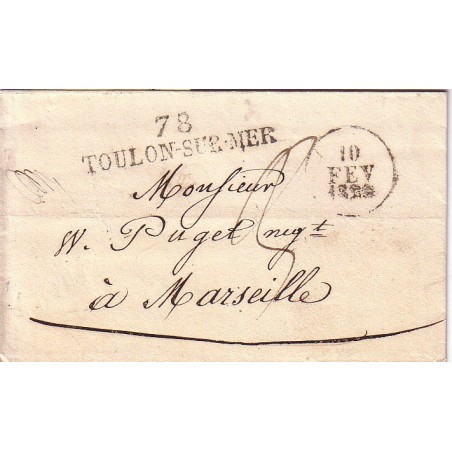 78
TOULON-SUR-MER
10
FEV
Monsieur
W. Puget negt
à Marseille